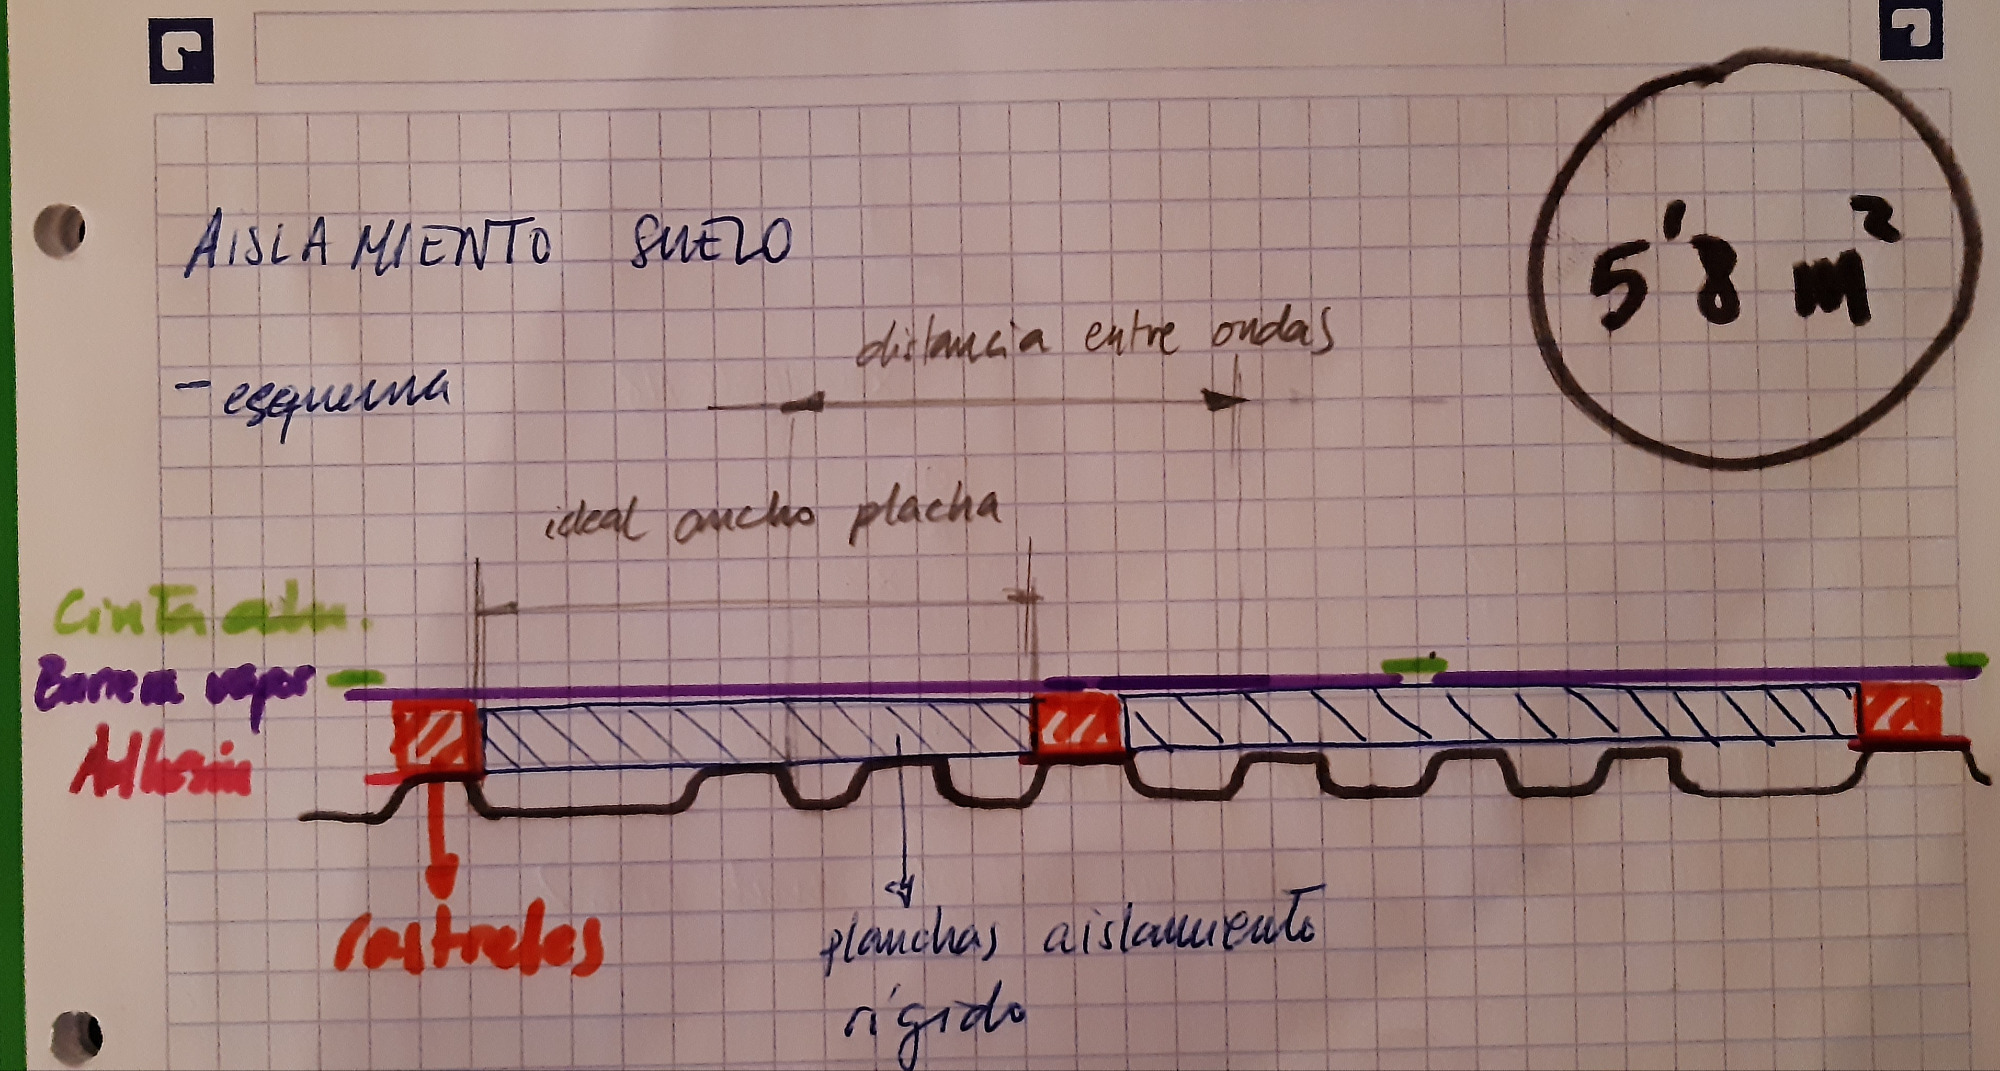 AISLAMIENTO SUELO
5'8 m²
distancia entre ondas
- esquema
ideal ancho placha
Cinta
Barrera vapor
Adhesivo
rastreles
planchas aislamiento
rígido